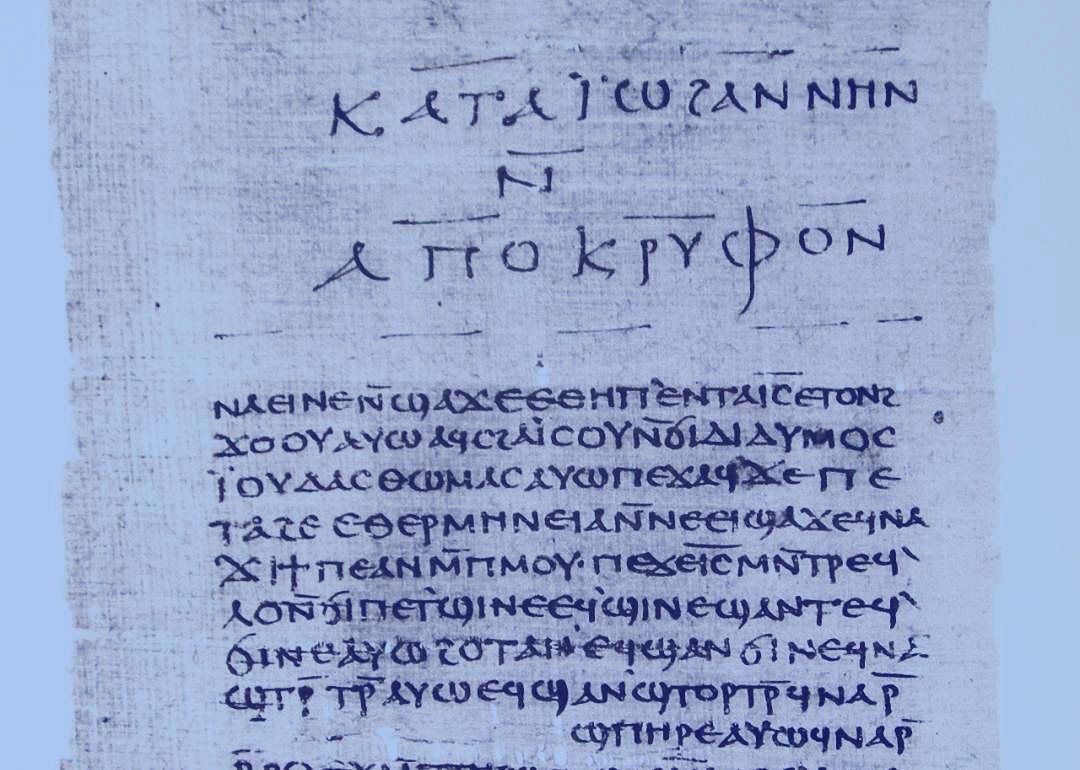 ⲕⲁⲧⲁ ⲓ̈ⲱϩⲁⲛⲛⲏⲛ
ⲛ̄
ⲁⲡⲟⲕⲣⲩⲫⲟⲛ
ⲛⲁⲉⲓⲛⲉⲛ̄ϣⲁϫⲉⲉⲑⲏⲡ`ⲉⲛⲧⲁⲓ̅ⲥ̅ⲉⲧⲟⲛϩ
ϫⲟⲟⲩⲁⲩⲱⲁϥⲥϩⲁⲓ̈ⲥⲟⲩⲛ̄ϭⲓⲇⲓⲇⲩⲙⲟⲥ
ⲓ̈ⲟⲩⲇⲁⲥⲑⲱⲙⲁⲥⲁⲩⲱⲡⲉϫⲁϥϫⲉⲡⲉ
ⲧⲁϩⲉⲉⲑⲉⲣⲙⲏⲛⲉⲓⲁⲛ̄ⲛⲉⲉⲓϣⲁϫⲉϥⲛⲁ
ϫⲓϯⲡⲉⲁⲛⲙ̄ⲡⲙⲟⲩ·ⲡⲉϫⲉⲓ̅ⲥ̅ⲙⲛ̄ⲧⲣⲉϥ`
ⲗⲟⲛ̄ϭⲓⲡⲉⲧ`ϣⲓⲛⲉⲉϥ`ϣⲓⲛⲉϣⲁⲛⲧⲉϥ`
ϭⲓⲛⲉⲁⲩⲱϩⲟⲧⲁⲛⲉϥϣⲁⲛϭⲓⲛⲉϥⲛⲁ
ϣⲧⲣ̄ⲧⲣ̄ⲁⲩⲱⲉϥϣⲁⲛϣⲧⲟⲣⲧⲣ̄ϥⲛⲁⲣ̄
ϣⲡⲏⲣⲉⲁⲩⲱϥⲛⲁⲣ̄